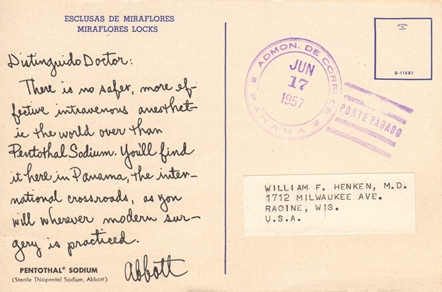 ESCLUSAS DE MIRAFLORES
MIRAFLORES LOCKS
Distinguido Doctor:
There is no safer, more ef-
fective intravenous anesthet-
ic the world over than
Pentothal Sodium. You'll find
it here, in Panama, the inter-
national crossroads, as you
will wherever modern sur-
gery is practiced.
Abbott
PENTOTHAL® SODIUM
(Sterile Thiopental Sodium, Abbott)
ADMON. DE CORREOS
JUN
17
1957
PANAMA
PORTE PAGADO
D-11481
WILLIAM F. HENKEN, M.D.
1712 MILWAUKEE AVE.
RACINE, WIS.
U.S.A.